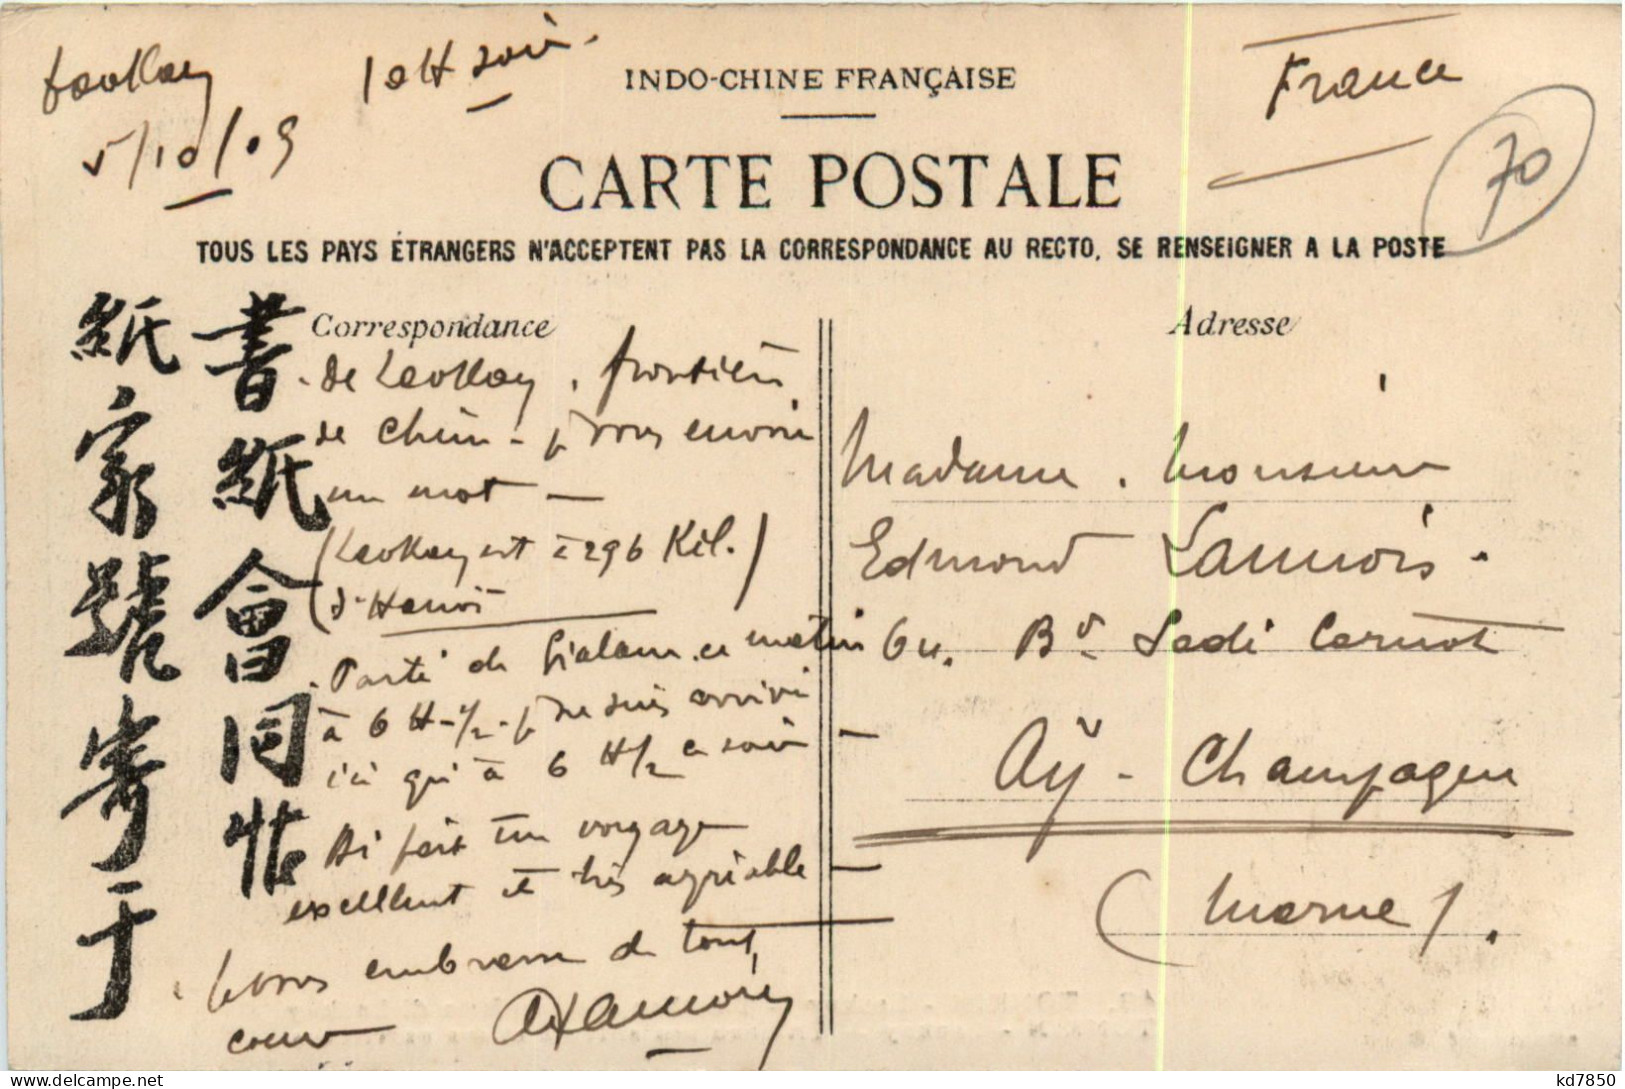 Laokay 10H soir.
5/10/09
France
70
INDO-CHINE FRANÇAISE
CARTE POSTALE
TOUS LES PAYS ÉTRANGERS N'ACCEPTENT PAS LA CORRESPONDANCE AU RECTO, SE RENSEIGNER A LA POSTE
書紙會同
紙家號寄于
Correspondance
de Laokay, frontière
de Chine - je vous envoie
un mot —
(Laokay est à 296 Kil.)
d'Hanoï
Parti de Gialam ce matin
à 6 H-1/2 - je ne suis arrivé
ici qu'à 6 H1/2 ce soir —
Ai fait un voyage
excellent et très agréable —
Je vous embrasse de tout
cœur
Adresse
Madame. Monsieur
Edmond Lannois.
6u. Bd Sadi Carnot
Aÿ - Champagne
(Marne).
kd7850